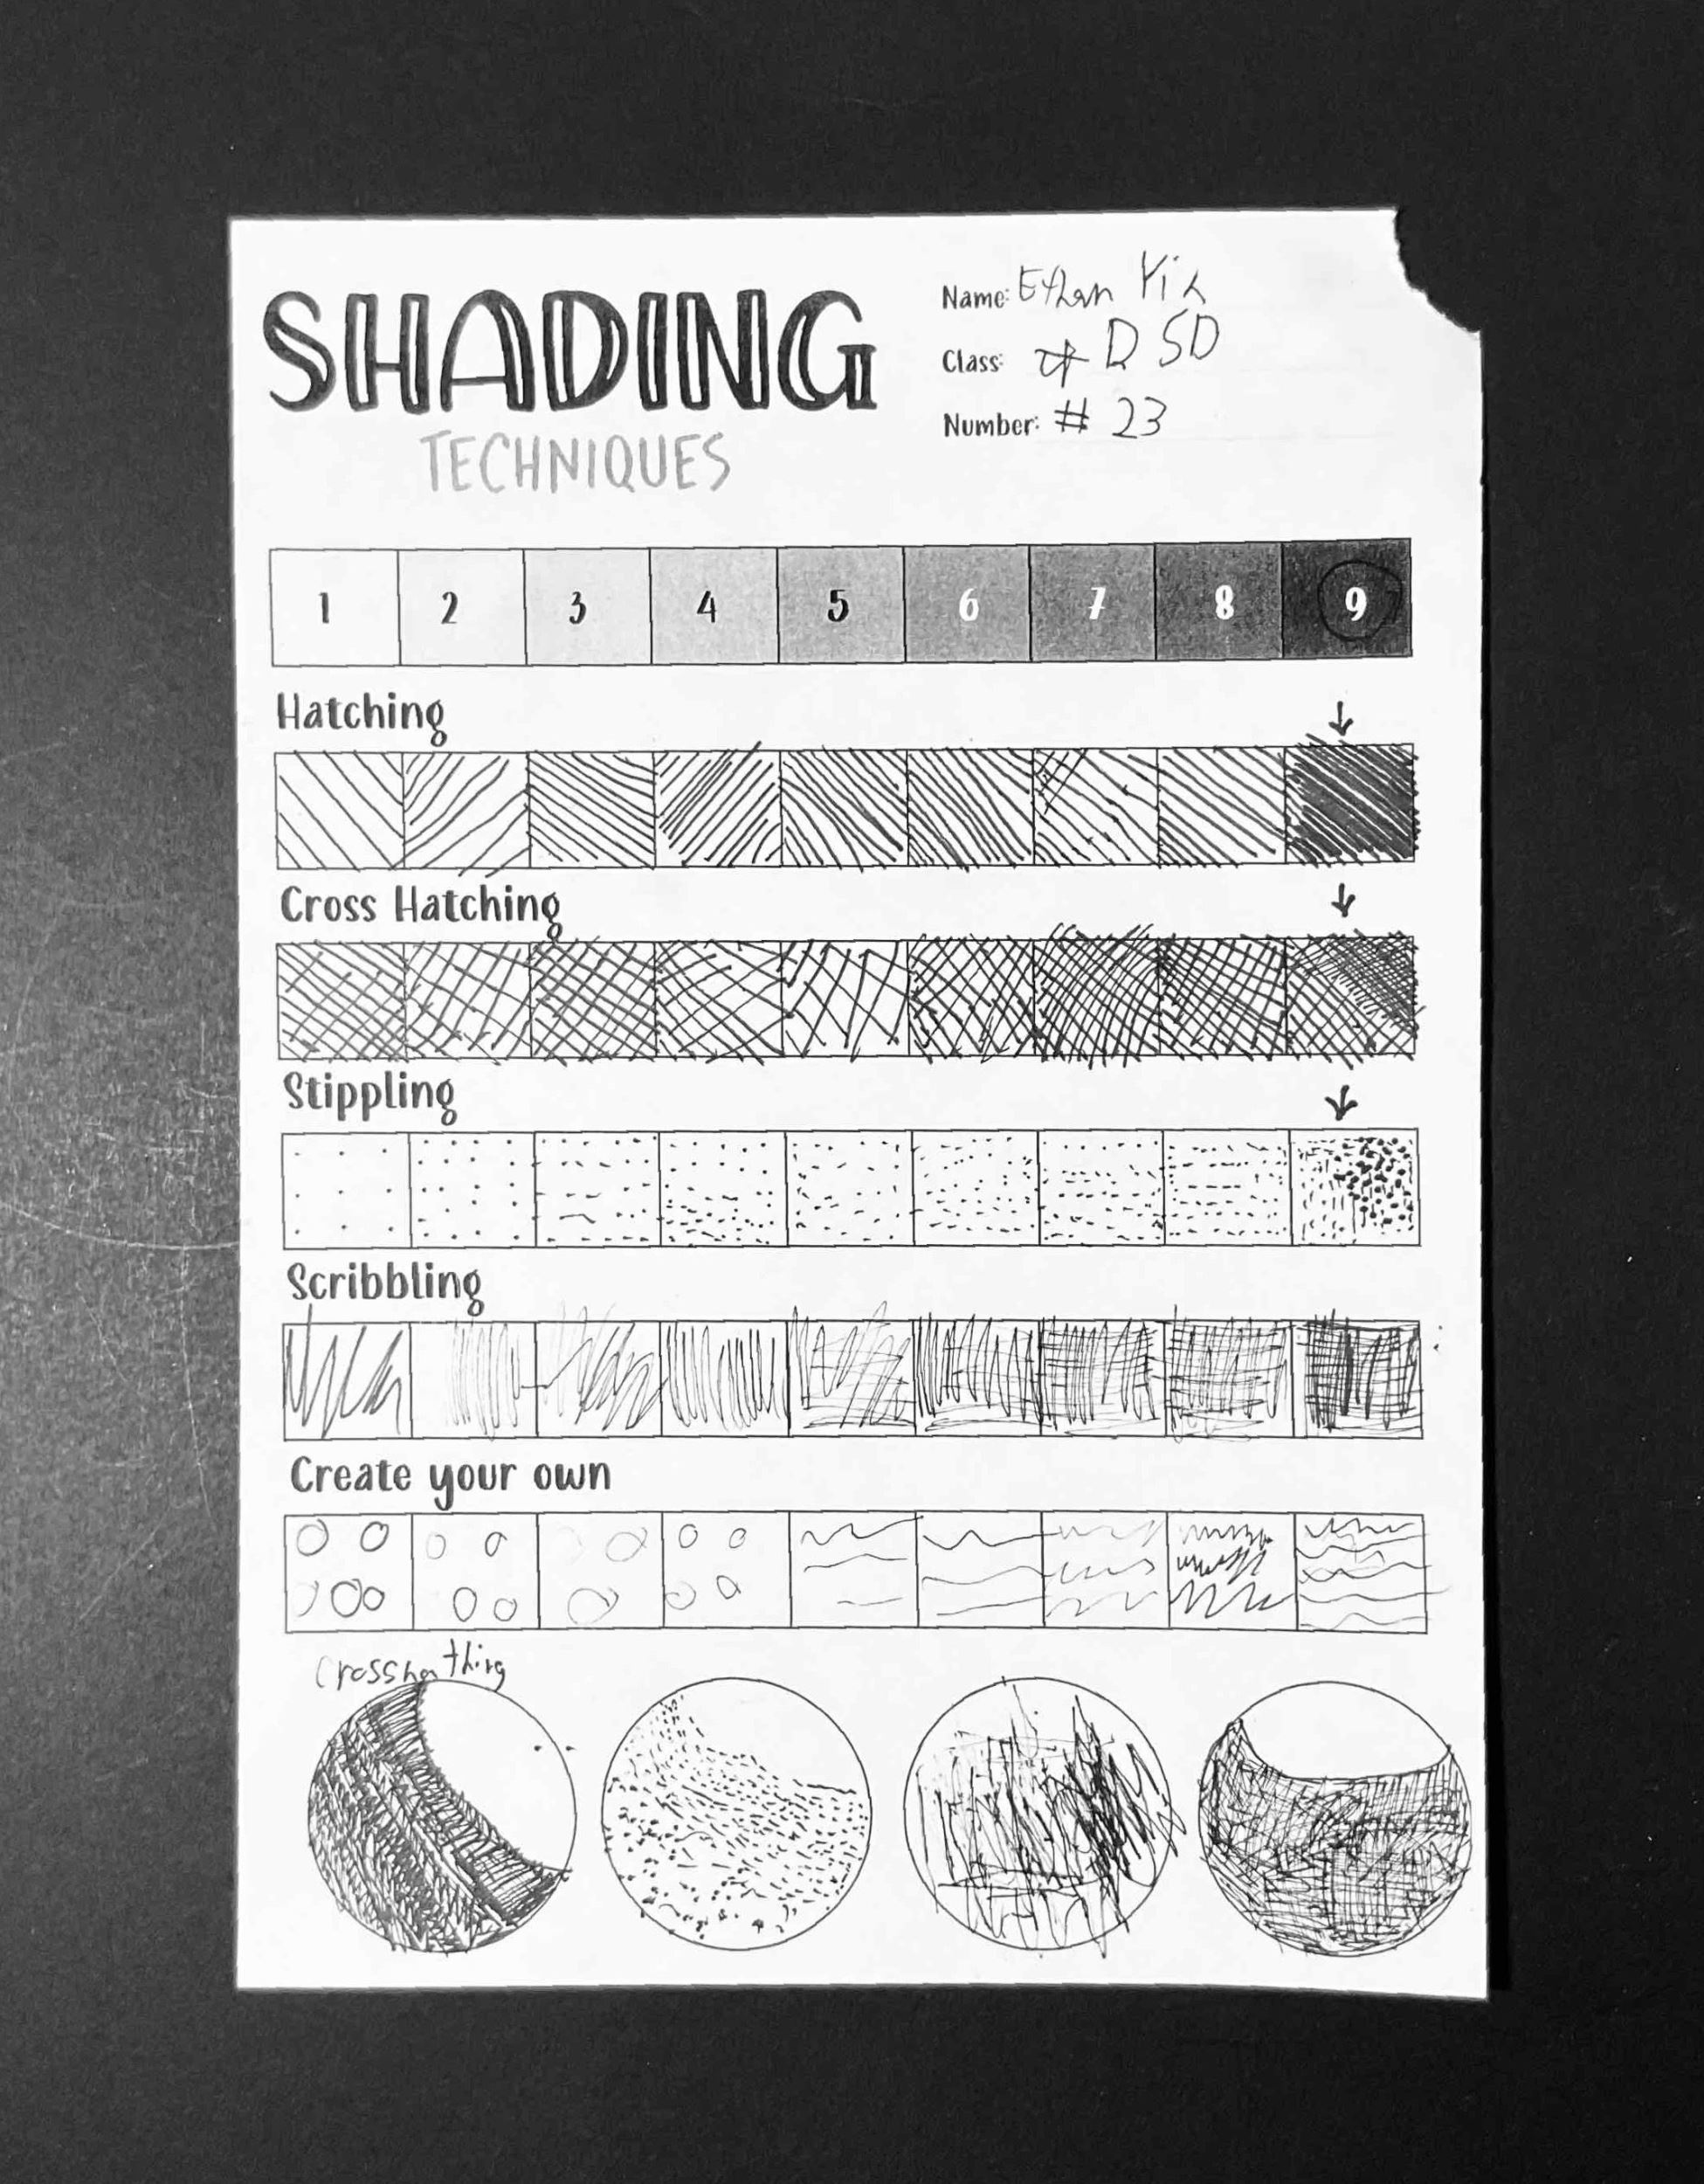 SHADING
TECHNIQUES
Name: Ethan Yik
Class: D SD
Number: # 23
1 2 3 4 5 6 7 8 9
Hatching
Cross Hatching
Stippling
Scribbling
Create your own
Crosshathing